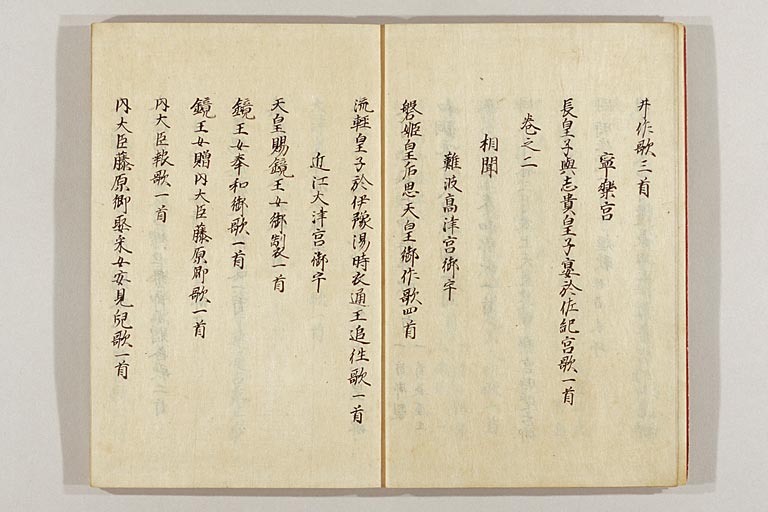 井作歌三首
寧樂宮
長皇子與志貴皇子宴於佐紀宮歌一首
卷之二
相聞
難波高津宮御宇
磐姬皇后思天皇御作歌四首
流輕皇子於伊豫湯時衣通王追徃歌一首
近江大津宮御宇
天皇賜鏡王女御製一首
鏡王女奉和御歌一首
鏡王女贈內大臣藤原卿歌一首
內大臣報歌一首
內大臣藤原卿娶采女安見兒歌一首